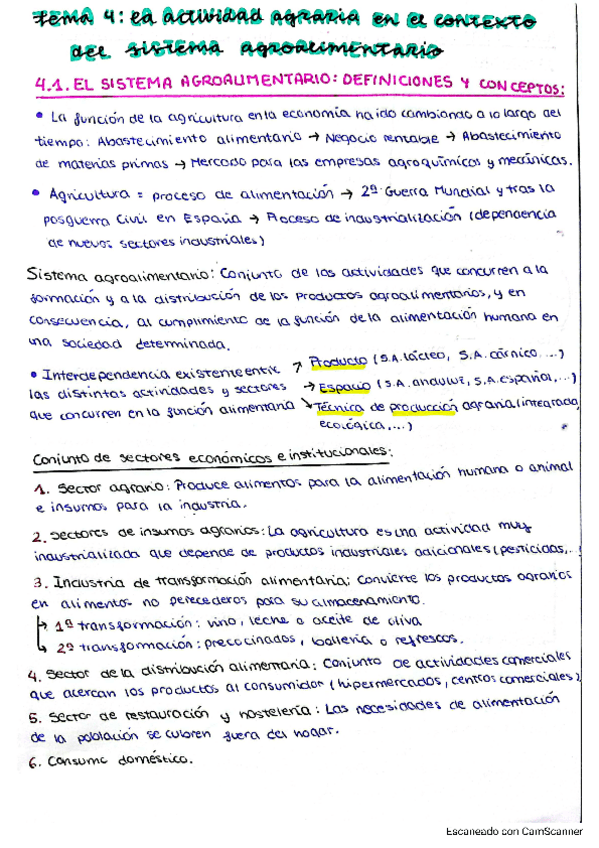 Tema 4: La actividad agraria en el contexto
del sistema agroalimentario
4.1. EL SISTEMA AGROALIMENTARIO: DEFINICIONES Y CONCEPTOS:
• La función de la agricultura en la economía ha ido cambiando a lo largo del
tiempo: Abastecimiento alimentario → Negocio rentable → Abastecimiento
de materias primas → Mercado para las empresas agroquímicos y mecánicas.
• Agricultura = proceso de alimentación → 2ª Guerra Mundial y tras la
posguerra Civil en España → Proceso de industrialización (dependencia
de nuevos sectores industriales)
Sistema agroalimentario: Conjunto de las actividades que concurren a la
formación y a la distribución de los productos agroalimentarios, y en
consecuencia, al cumplimiento de la función de la alimentación humana en
una sociedad determinada.
• Interdependencia existente entre ↗ Producto (S.A. lácteo, S.A. cárnico, ...)
las distintas actividades y sectores → Espacio (S.A. andaluz, S.A. español, ...)
que concurren en la función alimentaria ↘ Técnica de producción agraria (integrada,
ecológica, ...)
Conjunto de sectores económicos e institucionales:
1. Sector agrario: Produce alimentos para la alimentación humana o animal
e insumos para la industria.
2. Sectores de insumos agrarios: La agricultura es una actividad muy
industrializada que depende de productos industriales adicionales (pesticidas, ..
3. Industria de transformación alimentaria: Convierte los productos agrarios
en alimentos no perecederos para su almacenamiento.
↳ 1ª transformación: vino, leche o aceite de oliva
↳ 2ª transformación: precocinados, bollería o refrescos.
4. Sector de la distribución alimentaria: Conjunto de actividades comerciales
que acercan los productos al consumidor (hipermercados, centros comerciales)
5. Sector de restauración y hostelería: Las necesidades de alimentación
de la población se cubren fuera del hogar.
6. Consumo doméstico.
Escaneado con CamScanner